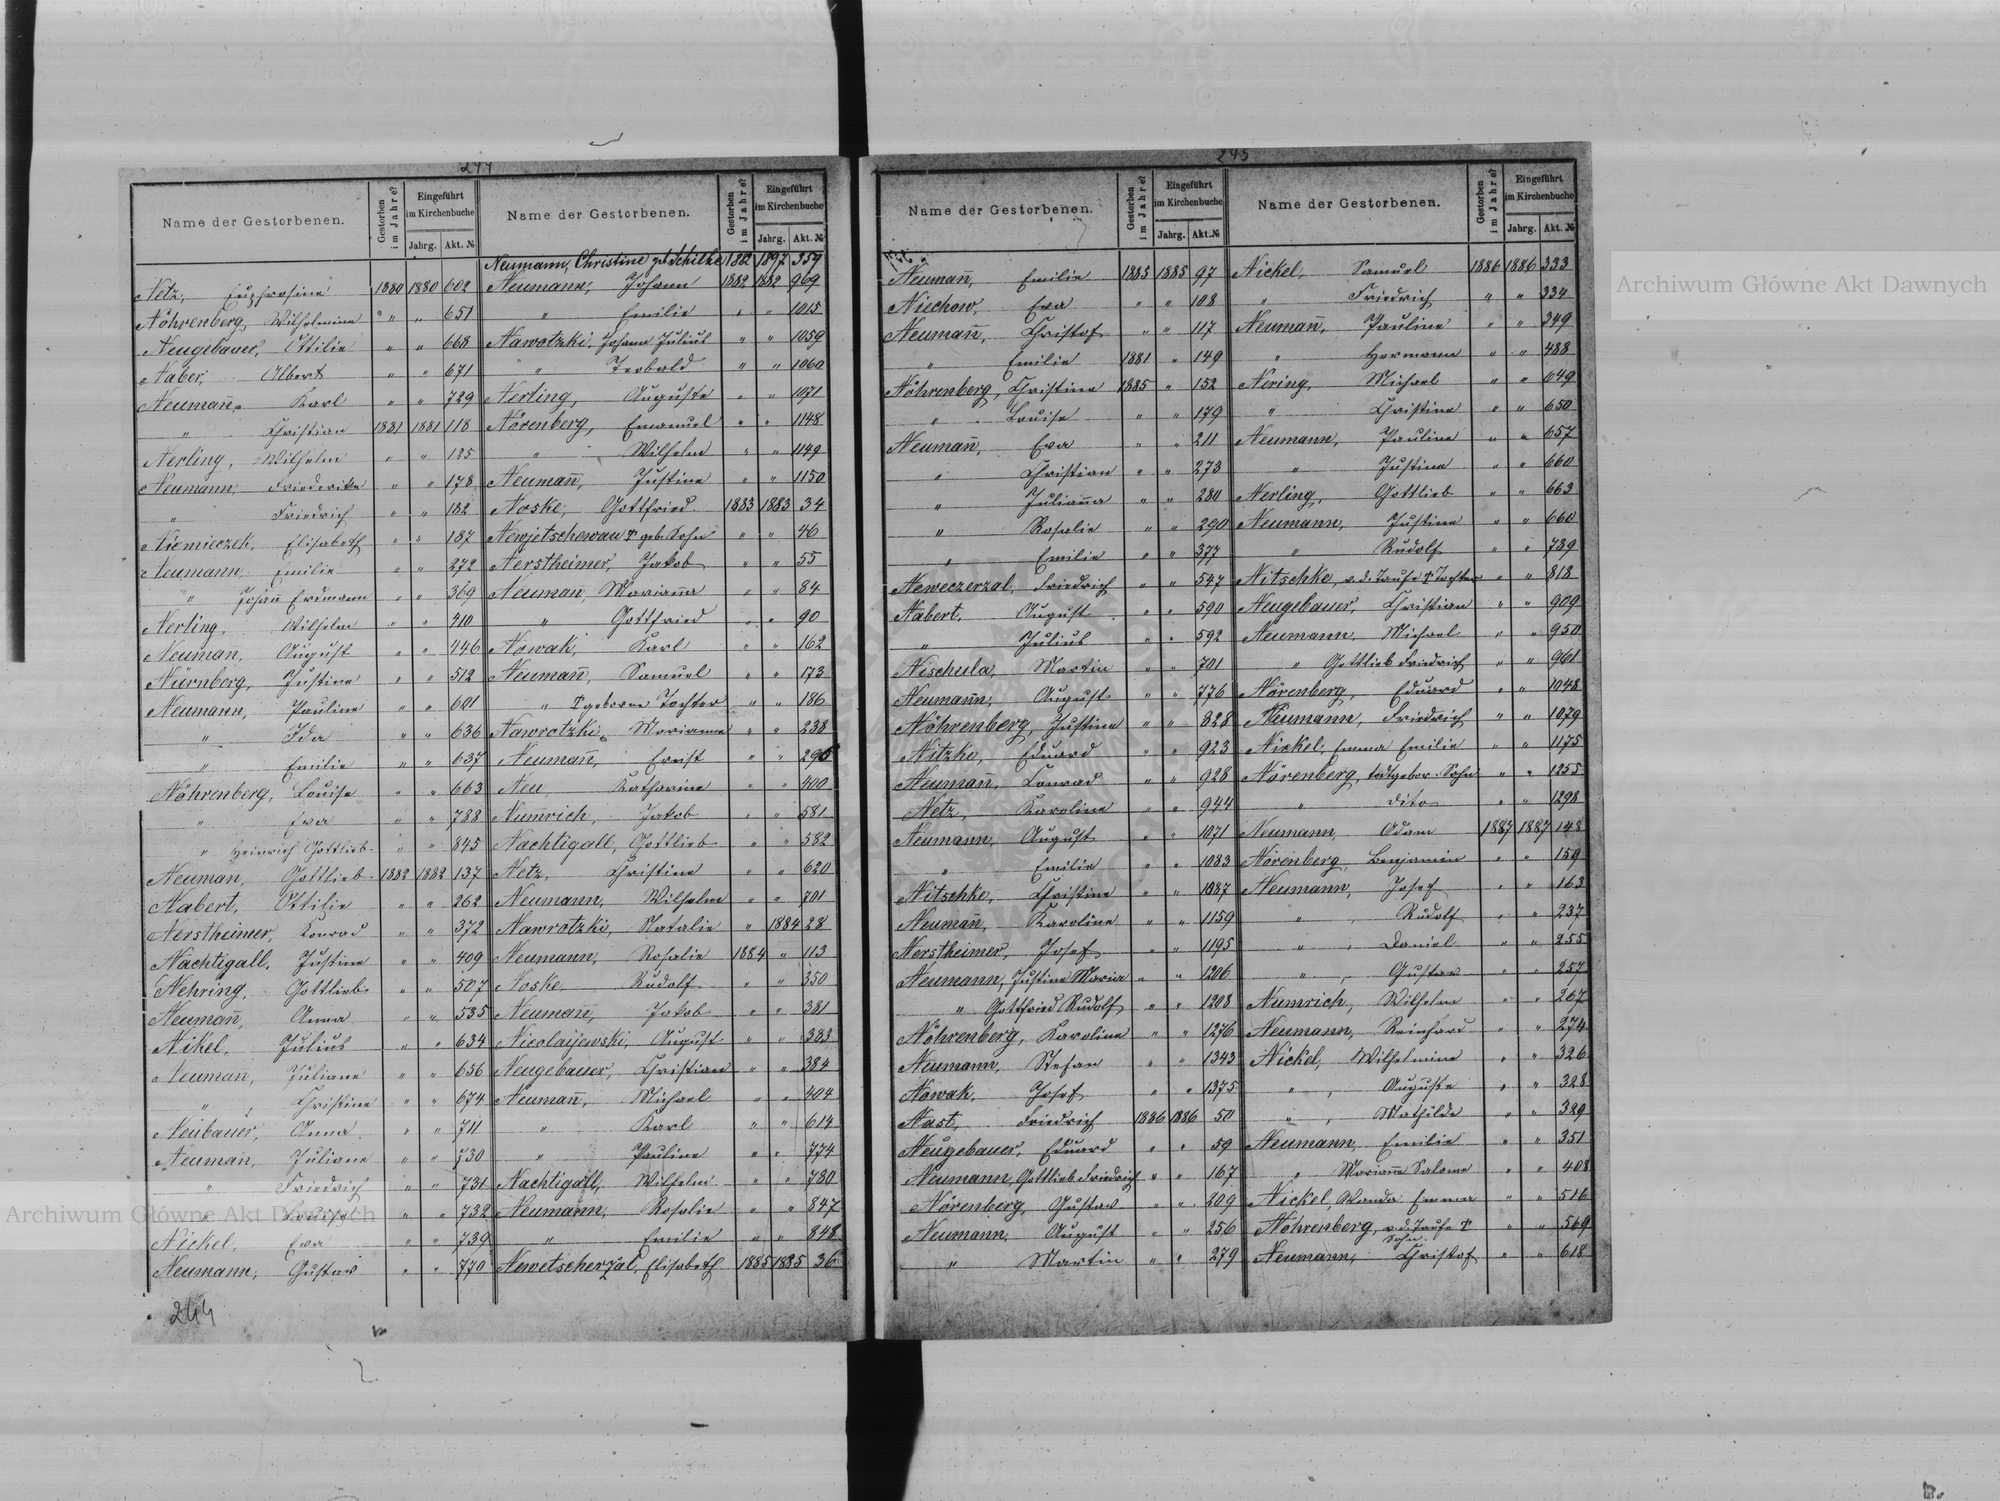 244
Name der Gestorbenen. Gestorben im Jahre? Eingeführt im Kirchenbuche Jahrg. Akt. №
Netz, Euphrosine 1880 1880 602
Nöhrenberg, Wilhelmine " " 651
Neugebauer, Ottilie " " 668
Naber, Albert " " 671
Neumañ, Karl " " 729
" Christian 1881 1881 118
Nerling, Wilhelm " " 125
Neumann, Friederike " " 178
" Friedrich " " 182
Niemieczek, Elisabeth " " 187
Neumann, Emilie " " 272
" Johañ Erdmann " " 369
Nerling, Wilhelm " " 410
Neuman, August " " 446
Nürnberg, Justine " " 512
Neumann, Pauline " " 601
" Ida " " 636
" Emilie " " 637
Nöhrenberg, Louise " " 663
" Eva " " 788
" Heinrich Gottlieb " " 845
Neuman, Gottlieb 1882 1882 137
Nabert, Ottilie " " 262
Nerstheimer, Konrad " " 372
Nachtigall, Justine " " 409
Nehring, Gottlieb " " 507
Neumañ, Anna " " 535
Nikel, Julius " " 634
Neuman, Juliane " " 656
" Christine " " 674
Neubauer, Anna " " 711
Neuman, Juliane " " 730
" Friedrich " " 731
" " " 732
Nickel, Eva " " 739
Neumann, Gustav " " 770
244
Name der Gestorbenen. Gestorben im Jahre? Eingeführt im Kirchenbuche Jahrg. Akt. №
Neumann, Christine geb. Schilke 1882 1897 359
Neumann, Johann 1882 1882 969
" Emilie " " 1015
Nawotzki, Johann Julius " " 1059
" Teobald " " 1060
Nerling, Auguste " " 1071
Nörenberg, Emanuel " " 1148
" Wilhelm " " 1149
Neumañ, Justine " " 1150
Noske, Gottfried 1883 1883 34
Newjetschewau geb. Sohn " " 46
Nerstheimer, Jakob " " 55
Neuman, Mariaña " " 84
" Gottfried " " 90
Nowak, Karl " " 162
Neumañ, Samuel " " 173
" geborene Tochter " " 186
Nawrotzki, Marianna " " 238
Neumañ, Ernst " " 296
Neu, Katharine " " 400
Numrich, Jakob " " 581
Nachtigall, Gottlieb " " 582
Netz, Christine " " 620
Neumann, Wilhelm " " 701
Nawrotzki, Natalie " 1884 28
Neumann, Rosalie 1884 " 113
Noske, Rudolf " " 350
Neumañ, Jakob " " 381
Nicolaijewski, August " " 383
Neugebauer, Christian " " 384
Neumañ, Michael " " 404
" Karl " " 614
" Pauline " " 774
Nachtigall, Wilhelm " " 780
Neumann, Rosalie " " 847
" Emilie " " 848
Newetscherzal, Elisabeth 1885 1885 36
245
Name der Gestorbenen. Gestorben im Jahre? Eingeführt im Kirchenbuche Jahrg. Akt. №
Neumañ, Emilie 1885 1885 97
Niechow, Eva " " 108
Neumañ, Christof " " 117
" Emilie 1881 " 149
Nöhrenberg, Christine 1885 " 152
" Louise " " 179
Neumañ, Eva " " 211
" Christian " " 273
" Juliaña " " 280
" Rosalie " " 290
" Emilie " " 377
Neweczerzal, Friedrich " " 547
Nabert, August " " 590
" Julius " " 592
Nischula, Martin " " 701
Neumann, August " " 776
Nöhrenberg, Justine " " 828
Nitzke, Eduard " " 923
Neumañ, Konrad " " 928
Netz, Karoline " " 944
Neumann, August " " 1071
" Emilie " " 1083
Nitschke, Christine " " 1087
Neumañ, Karoline " " 1159
Nerstheimer, Josef " " 1195
Neumann, Justine Maria " " 1206
" Gottfried Rudolf " " 1208
Nöhrenberg, Karoline " " 1276
Neumann, Stefan " " 1343
Nowak, Josef " " 1375
Nast, Friedrich 1886 1886 50
Neugebauer, Eduard " " 59
Neumann, Gottlieb Friedrich " " 167
Nörenberg, Gustav " " 209
Neumann, August " " 256
" Martin " " 279
Name der Gestorbenen. Gestorben im Jahre? Eingeführt im Kirchenbuche Jahrg. Akt. №
Nickel, Samuel 1886 1886 333
" Friedrich " " 334
Neumañ, Pauline " " 349
" Hermann " " 488
Nering, Michael " " 649
" Christine " " 650
Neumann, Pauline " " 657
" Justine " " 660
Nerling, Gottlieb " " 663
Neumann, Justine " " 660
" Rudolf " " 739
Nitschke, v. d. Taufe † Tochter " " 818
Neugebauer, Christian " " 909
Neumann, Michael " " 950
" Gottlieb Friedrich " " 961
Nörenberg, Eduard " " 1048
Neumann, Friedrich " " 1079
Nickel, Emma Emilie " " 1175
Nörenberg, todtgebor. Sohn " " 1255
" dito " " 1298
Neumann, Adam 1887 1887 148
Nörenberg, Benjamin " " 159
Neumann, Josef " " 163
" Rudolf " " 237
" Daniel " " 255
" Gustav " " 257
Numrich, Wilhelm " " 267
Neumann, Reinhard " " 274
Nickel, Wilhelmine " " 326
" Auguste " " 328
" Mathilde " " 329
Neumann, Emilie " " 351
" Mariaña Salome " " 408
Nickel, Wanda Emma " " 516
Nöhrenberg, v. d. Taufe † Sohn " " 569
Neumann, Christof " " 618
Archiwum Główne Akt Dawnych
Archiwum Główne Akt Dawnych